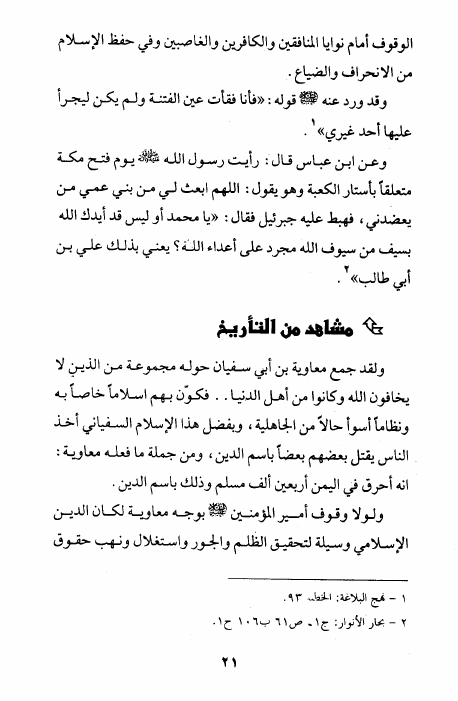 الوقوف أمام نوايا المنافقين والكافرين والغاصبين وفي حفظ الإسلام
من الانحراف والضياع.
وقد ورد عنه ﷺ قوله: «فأنا فقأت عين الفتنة ولم يكن ليجرأ
عليها أحد غيري»١.
وعن ابن عباس قال: رأيت رسول الله ﷺ يوم فتح مكة
متعلقاً بأستار الكعبة وهو يقول: اللهم ابعث لي من بني عمي من
يعضدني، فهبط عليه جبرئيل فقال: «يا محمد أو ليس قد أيدك الله
بسيف من سيوف الله مجرد على أعداء الله؟ يعني بذلك علي بن
أبي طالب»٢.
مشاهد من التأريخ
ولقد جمع معاوية بن أبي سفيان حوله مجموعة من الذين لا
يخافون الله وكانوا من أهل الدنيا.. فكوّن بهم اسلاماً خاصاً به
ونظاماً أسوأ حالاً من الجاهلية، وبفضل هذا الإسلام السفياني أخذ
الناس يقتل بعضهم بعضاً باسم الدين، ومن جملة ما فعله معاوية:
انه أحرق في اليمن أربعين ألف مسلم وذلك باسم الدين.
ولولا وقوف أمير المؤمنين بوجه معاوية لكان الدين
الإسلامي وسيلة لتحقيق الظلم والجور واستغلال ونهب حقوق
١ - نهج البلاغة: الخطب ٩٣.
٢ - بحار الأنوار: ج١ـ ص٦١ ب١٠٦ ح١.
٢١